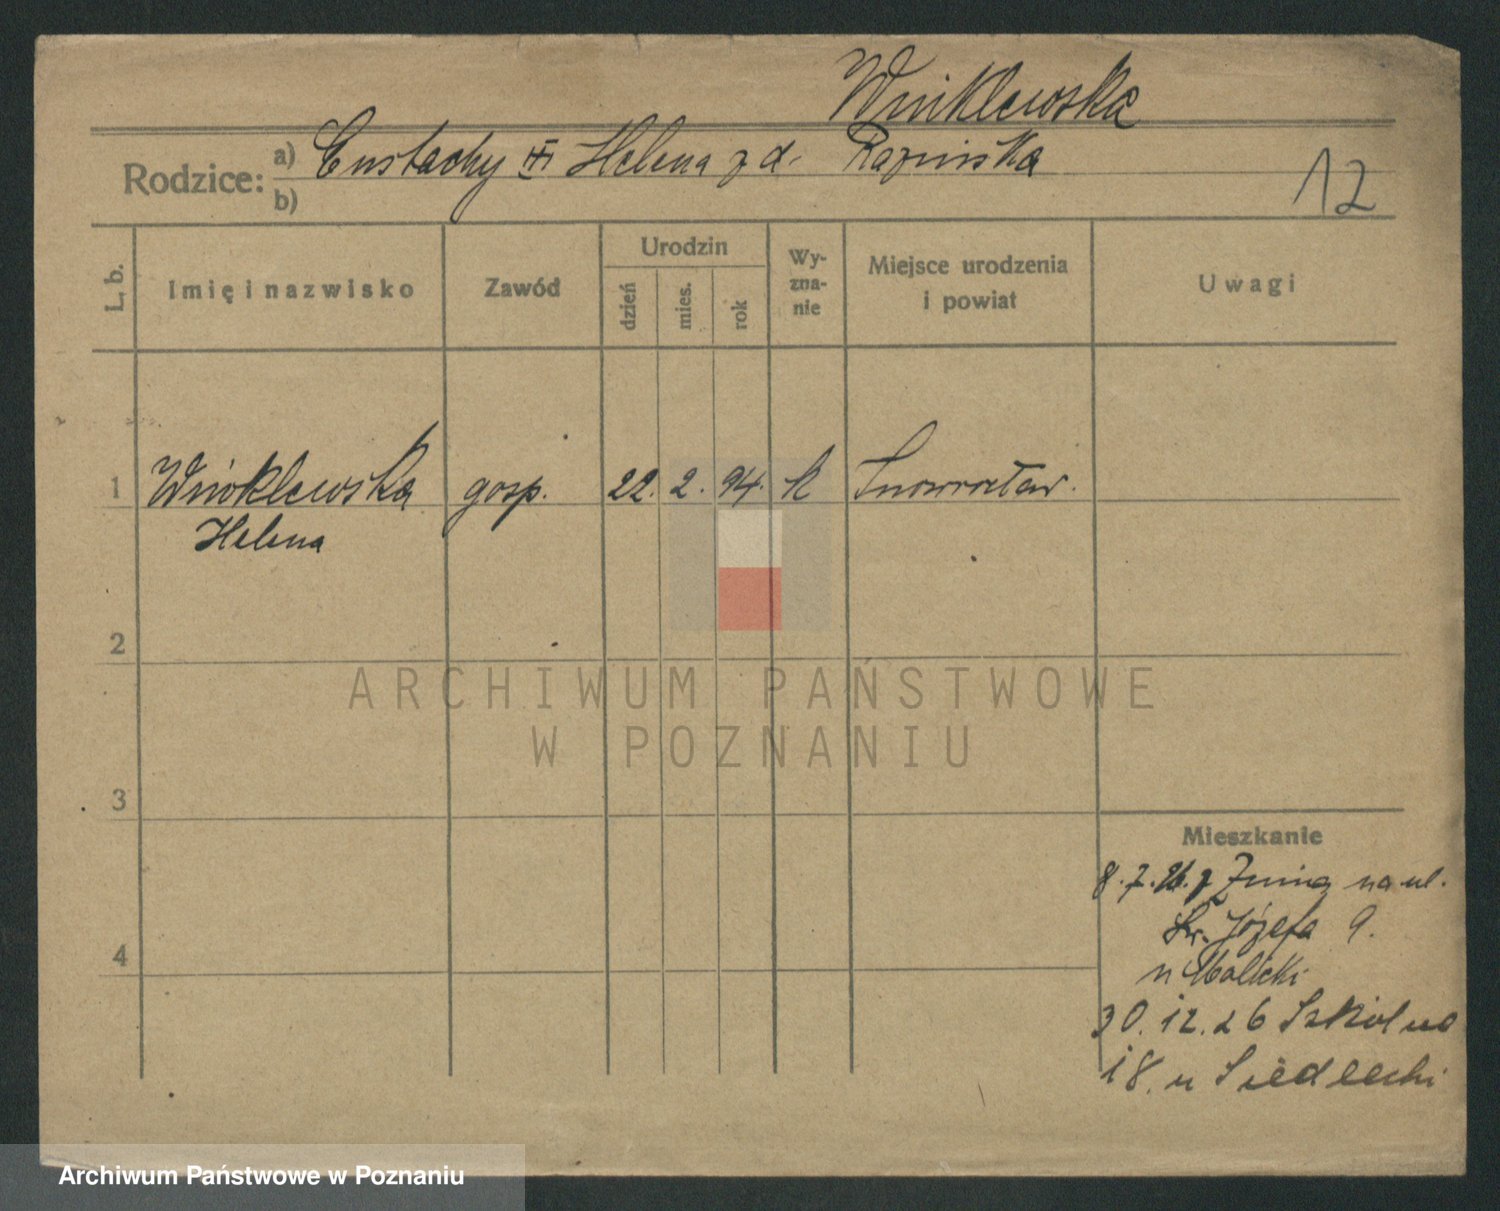 Winklewska
Rodzice: a) Eustachy Helena z d. Razinska
b)
12
L. b.
Imię i nazwisko
Zawód
Urodzin
dzień
mies.
rok
Wy-
zna-
nie
Miejsce urodzenia
i powiat
Uwagi
1 Winklewska gosp. 22. 2. 94. k Inowrocław.
Helena
2
3
4
ARCHIWUM PAŃSTWOWE
W POZNANIU
Mieszkanie
8.7.26. z Żnina na ul.
Św. Józefa 9.
u Malicki
30.12.26 Szkolna
18. u Siedlecki
Archiwum Państwowe w Poznaniu